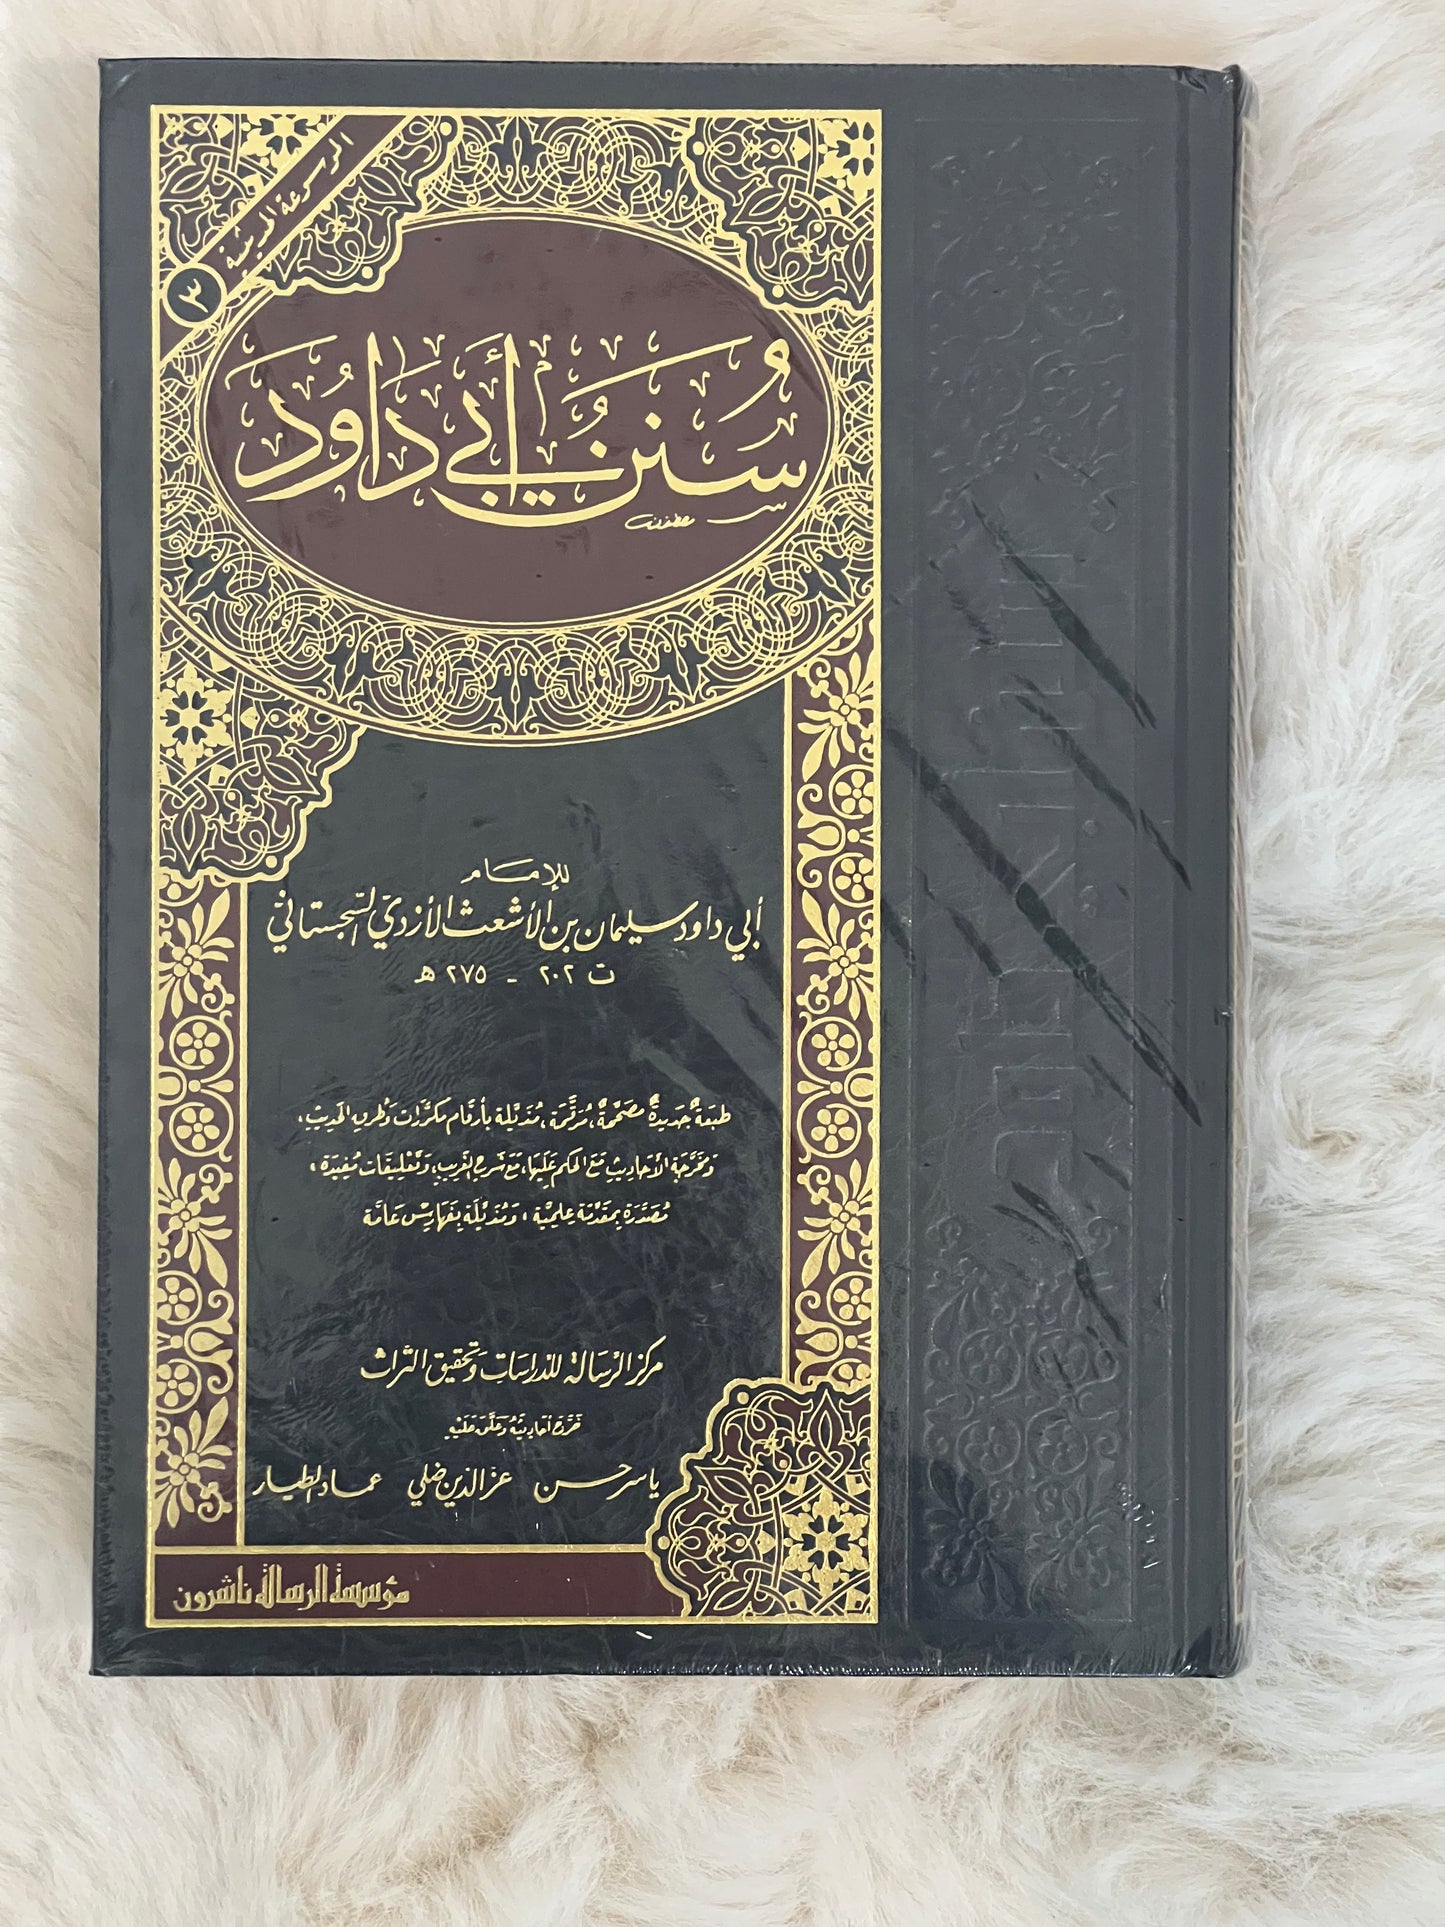 الموسوعة الحديثية
٣
سُنَنُ أَبِي دَاوُدَ
للإمَام
أبي داود سليمان بن الأشعث الأزدي السجستاني
ت ٢٠٢ - ٢٧٥ هـ
طبعَة جَديدة مصَحَّحة، مُرَقَّمة، مُذَيَّلة بأرقام مكرَّرات وَطُرق الحَديث،
وَمُخَرَّجة الأحَاديث مَعَ الحكم عَليهَا، مَعَ شَرح الغَريب، وَتَعْليقَات مُفيدَة،
مُصَدَّرة بمقَدِّمَة عِلميَّة، وَمُذَيَّلة بفَهَارِس عَامَّة
مركز الرسَالة للدراسَات وَتحقيق التراث
خَرَّج أحَاديثَهُ وَعَلَّقَ عَلَيْه
ياسر حسن عز الدين ضلي عماد الطيار
مؤسسة الرسالة ناشرون